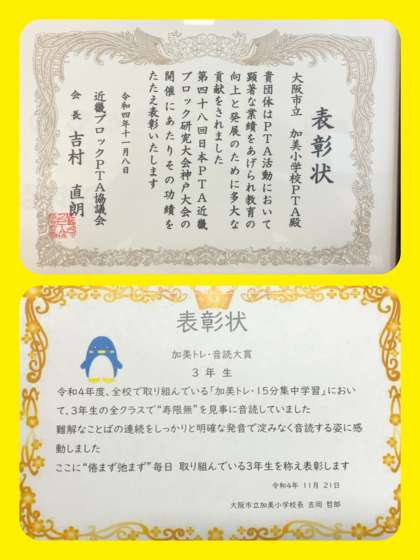 表彰状
大阪市立 加美小学校PTA殿
貴団体はPTA活動において
顕著な業績をあげられ教育の
向上と発展のために多大な
貢献をされました
第四十八回日本PTA近畿
ブロック研究大会神戸大会の
開催にあたりその功績を
たたえ表彰いたします
令和四年十一月八日
近畿ブロックPTA協議会
会長 吉村 直朗
表彰状
加美トレ・音読大賞
3年生
令和4年度、全校で取り組んでいる「加美トレ・15分集中学習」におい
て、3年生の全クラスで“寿限無”を見事に音読していました
難解なことばの連続をしっかりと明確な発音で淀みなく音読する姿に感
動しました
ここに“倦まず弛まず”毎日 取り組んでいる3年生を称え表彰します
令和4年 11月 21日
大阪市立加美小学校長 吉岡 哲郎